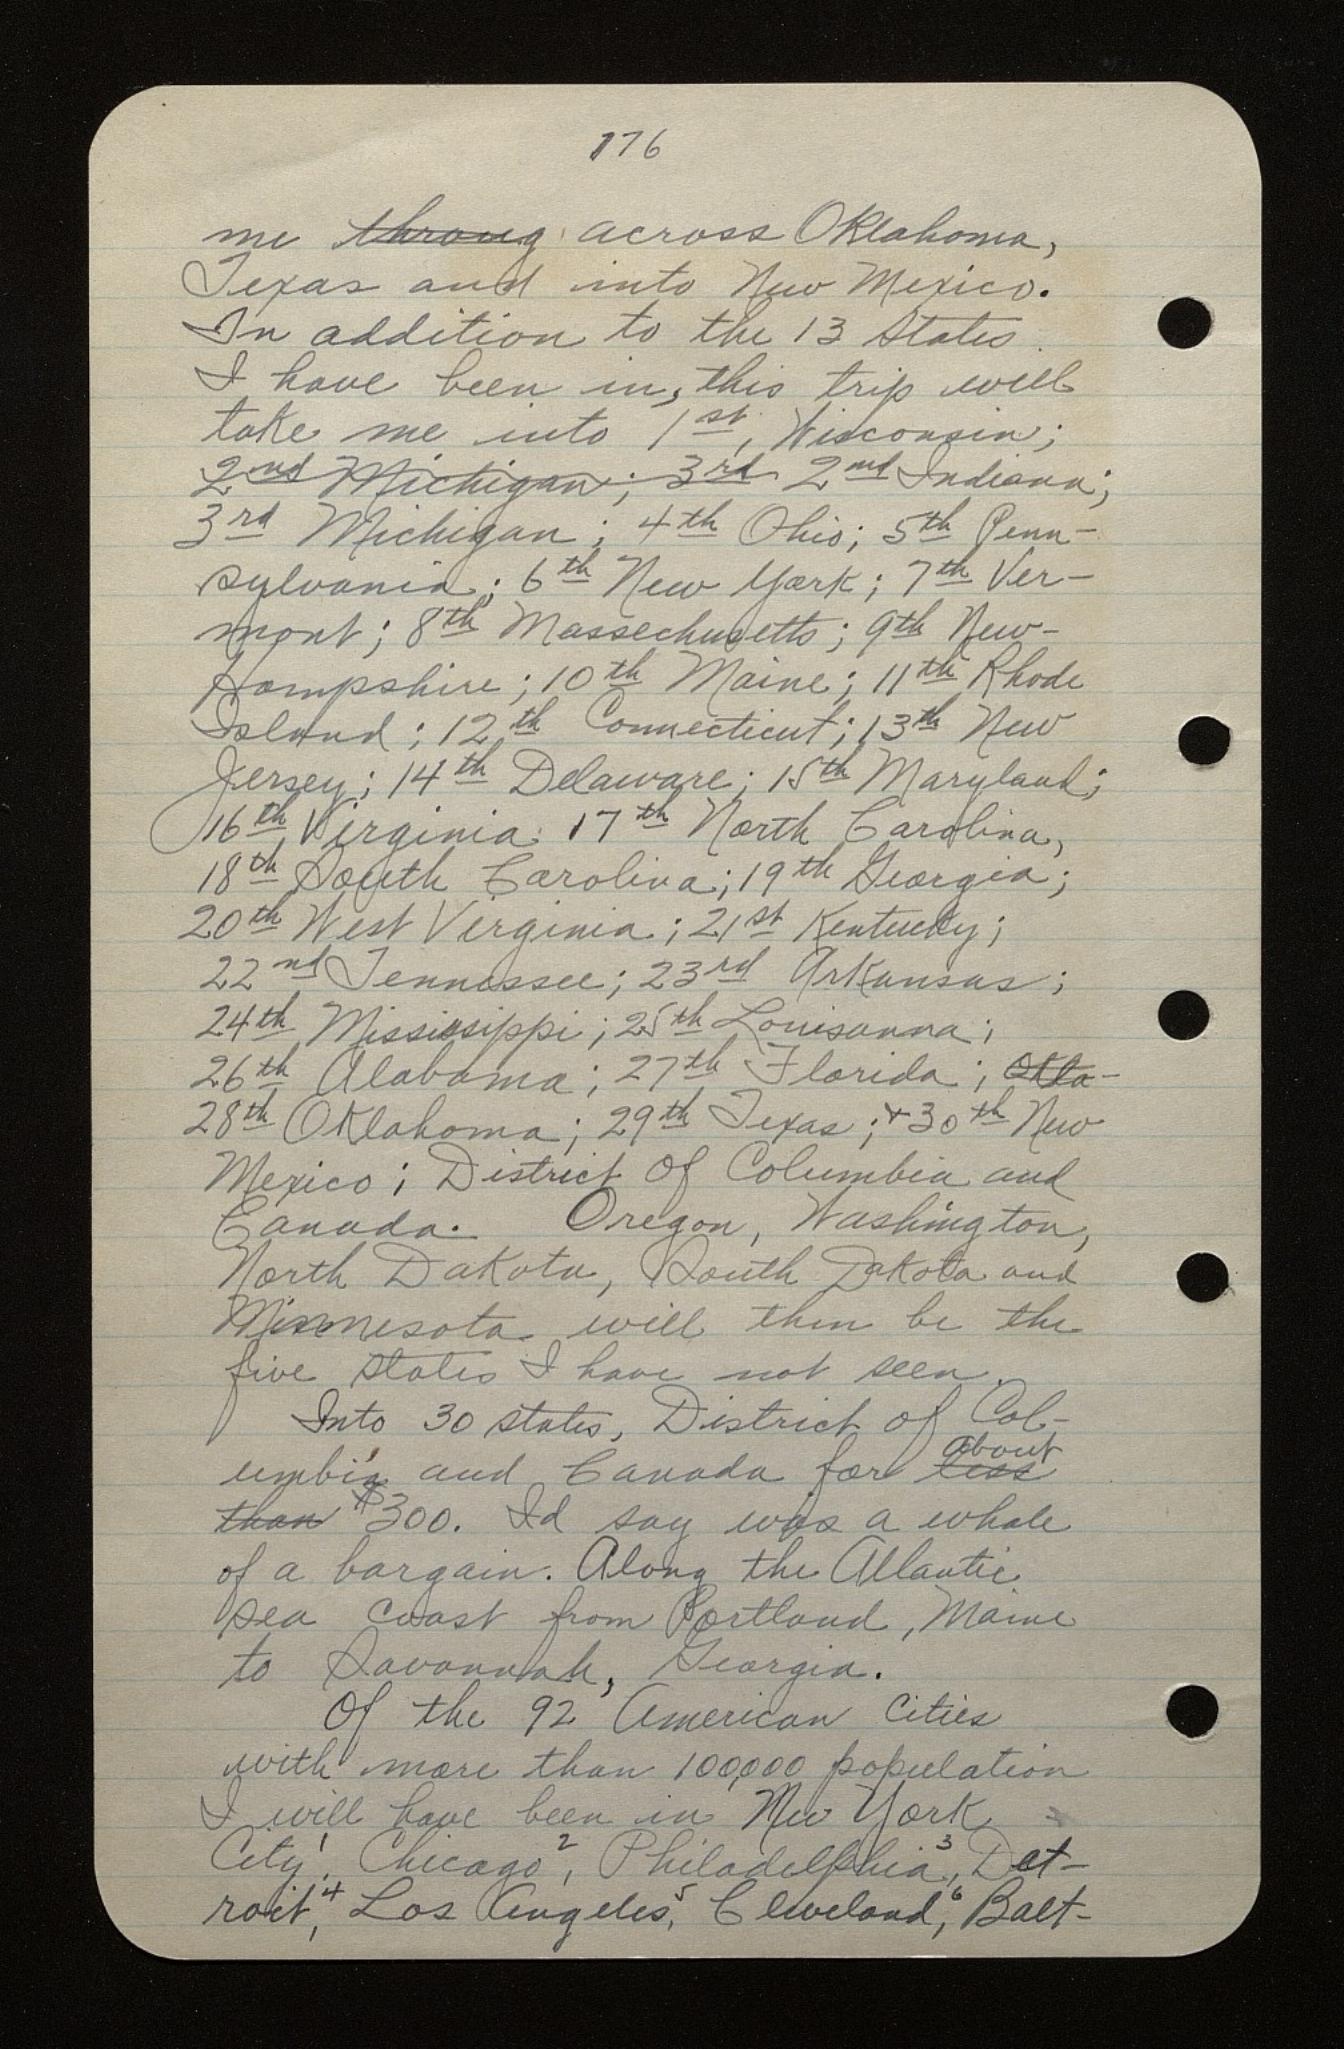 176
me throug across Oklahoma,
Texas and into New Mexico.
In addition to the 13 States
I have been in, this trip will
take me into 1st, Wisconsin;
2nd Michigan; 3rd 2nd Indiana;
3rd Michigan; 4th Ohio; 5th Penn-
sylvania; 6th New York; 7th Ver-
mont; 8th Massechusetts; 9th New-
Hampshire; 10th Maine; 11th Rhode
Island; 12th Connecticut; 13th New
Jersey; 14th Delaware; 15th Maryland;
16th Virginia 17th North Carolina,
18th South Carolina; 19th Georgia;
20th West Virginia; 21st Kentucky;
22nd Tennessee; 23rd Arkansas;
24th Mississippi; 25th Louisanna;
26th Alabama; 27th Florida; Okla-
28th Oklahoma; 29th Texas; + 30th New
Mexico; District of Columbia and
Canada. Oregon, Washington,
North Dakota, South Dakota and
Minnesota will then be the
five states I have not seen.
Into 30 states, District of Col-
umbia and Canada for less about
than $300. I'd say was a whole
of a bargain. Along the Atlantic
sea coast from Portland, Maine
to Savannah, Georgia.
Of the 92 American Cities
with more than 100,000 population
I will have been in New York
City1, Chicago2, Philadelphia3, Det-
roit,4 Los Angeles,5 Cleveland,6 Balt-